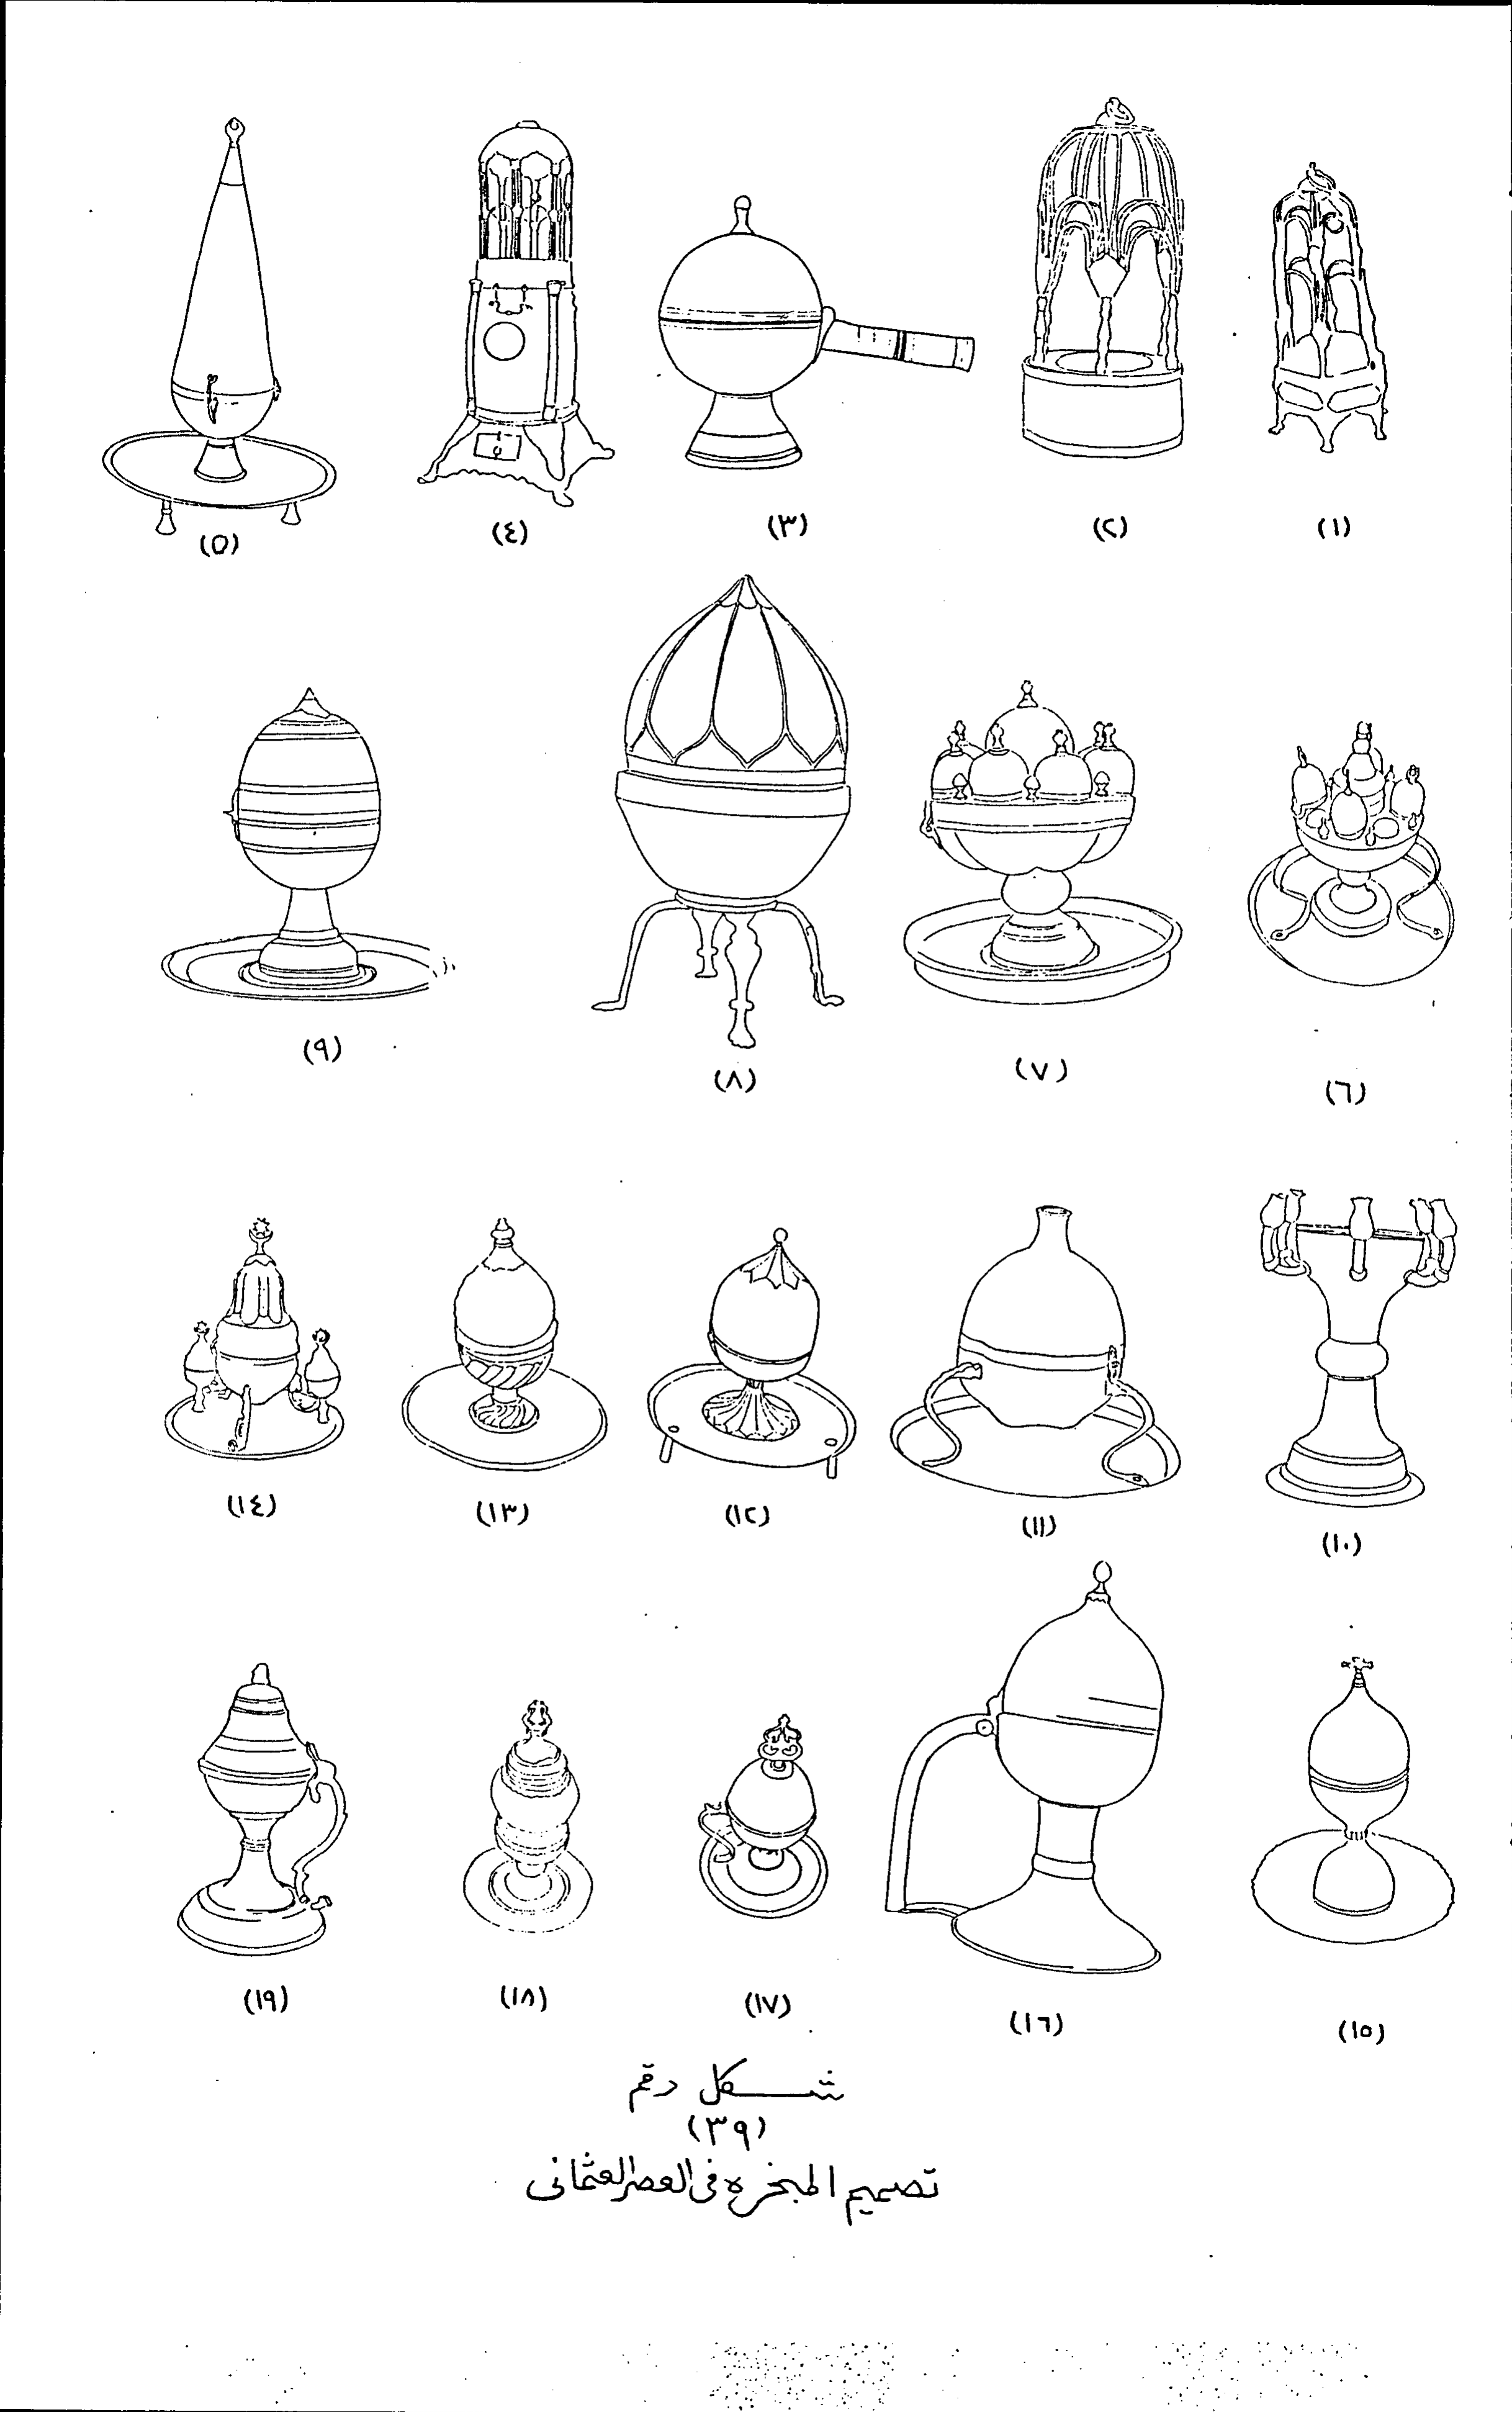 (١) (٢) (٣) (٤) (٥)
(٦) (٧) (٨) (٩)
(١٠) (١١) (١٢) (١٣) (١٤)
(١٥) (١٦) (١٧) (١٨) (١٩)
شكل رقم
(٣٩)
تصميم المبخره فى العصر العثمانى